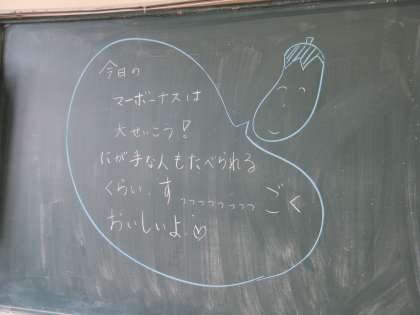 今日の
マーボーナスは
大せいこう!
にが手な人もたべられる
くらい、すっっっっっっっっごく
おいしいよ♡